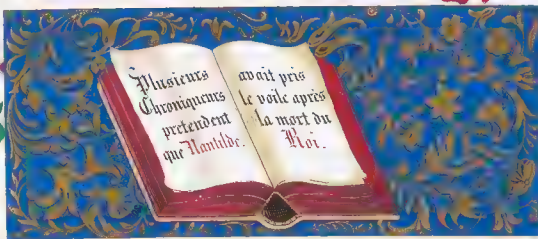 Plusieurs
Chroniqueurs
pretendent
que Nantilde.
avait pris
le voile après
la mort du
Roi.